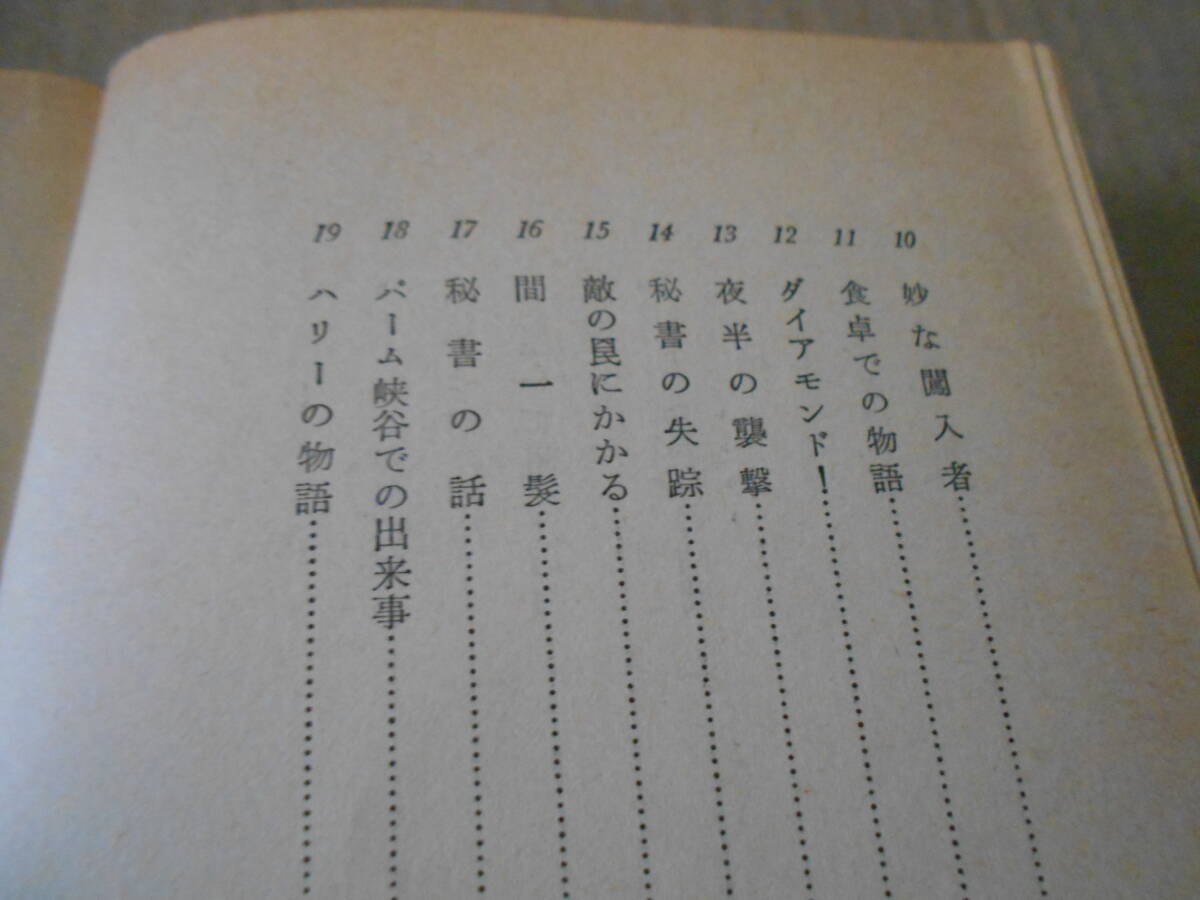 10 妙な闖入者
11 食卓での物語
12 ダイアモンド!
13 夜半の襲撃
14 秘書の失踪
15 敵の罠にかかる
16 間一髪
17 秘書の話
18 パーム峡谷での出来事
19 ハリーの物語